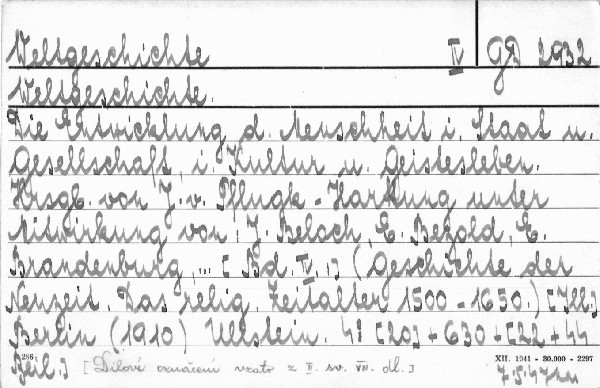 Weltgeschichte IV GD 2932
Weltgeschichte.
Die Entwicklung d. Menschheit i. Staat u.
Gesellschaft, i. Kultur u. Geistesleben.
Hrsgb. von J. v. Pflugk-Hartung unter
Mitwirkung von: J. Beloch, E. Bezold, E.
Brandenburg, ... [Bd. IV.:] (Geschichte der
Neuzeit. Das relig. Zeitalter 1500-1650.) [Ill.]
Berlin (1910) Ullstein. 4° [20] + 630 + [22 + 44
Beil.] [Dílové označení vzato z II. sv. VII. dl.]
286 XII. 1941 - 30.000 - 2297